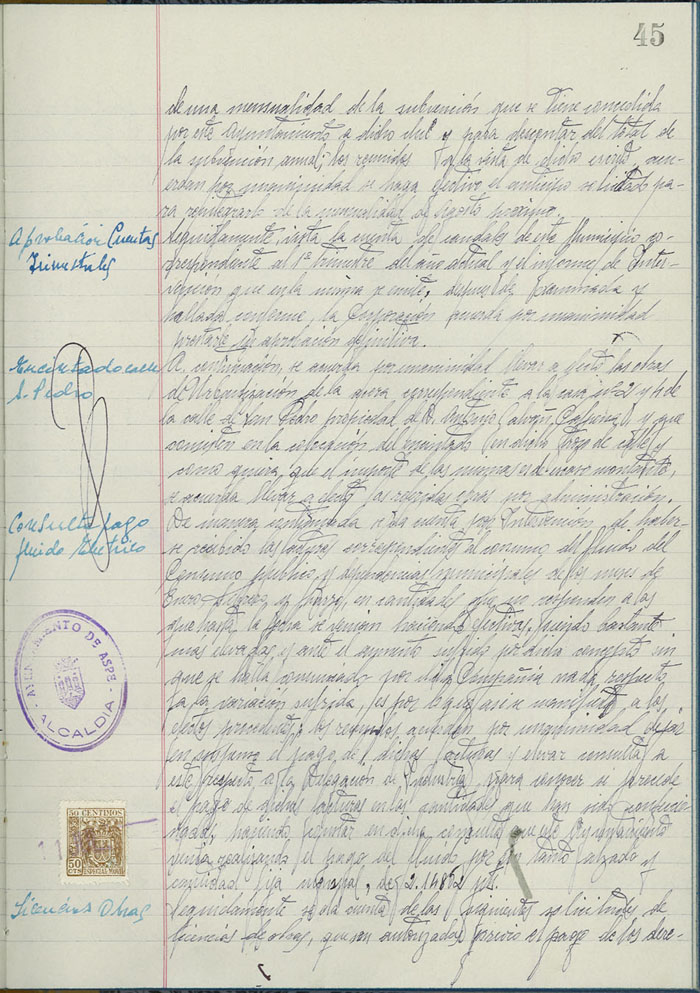 45
de una mensualidad de la subvención que se tiene concedida
por este Ayuntamiento a dicho Club y para descontar del total de
la subvención anual; los reunidos a la vista de dicho escrito, acuer-
dan por unanimidad se haga efectivo el anticipo solicitado pa-
ra reintegrarlo de la mensualidad de Agosto próximo.
Aprobación Cuentas
Trimestrales
Seguidamente, vista la cuenta de caudales de este Municipio co-
rrespondiente al 1er trimestre del año actual y el informe de Inter-
vención que en la misma se emite, después de examinada y
hallada conforme, la Corporación acuerda por unanimidad
prestarle su aprobación definitiva.
Encintado calle
S. Pedro
A continuación, se acuerda por unanimidad llevar a efecto las obras
de de la acera correspondiente a la casa nº 2 y 4 de
la calle de San Pedro propiedad de D. Antonio y que
consisten en la colocación del encintado en dicho trozo de calle y
como quiera que el importe de las mismas es de escaso montante,
se acuerda llevar a efecto las obras por administración.
Consulta pago
fluido eléctrico
De manera continuada se da cuenta por Intervención, de haber-
se recibido las facturas correspondientes al consumo del fluido del
Consumo público y dependencias municipales de los meses de
Enero, Febrero y Marzo, en cantidades que no responden a las
que hasta la fecha se venían haciendo efectivas, siendo bastante
más elevadas y ante el aumento sufrido por dicho concepto sin
que se haya comunicado por dicha Compañía nada respecto
a la variación sufrida, es por lo que se manifiesta, a los
efectos procedentes; los reunidos, acuerdan por unanimidad dejar
en suspenso el pago de dichas facturas y elevar consulta a
este respecto a la Delegación de Industria, para conocer si procede
el pago de dichas facturas en las cantidades que han sido
haciendo figurar en dicha consulta que este Ayuntamiento
venía realizando el pago del fluido por un tanto alzado y
cantidad fija mensual, de 2.148'62 pts.
AYUNTAMIENTO DE ASPE
ALCALDIA
50 CENTIMOS
50
CTS
ESPECIAL MOVIL
Licencias Obras
Seguidamente se da cuenta de las siguientes solicitudes de
licencias de obras, que son autorizadas previo el pago de los dere-